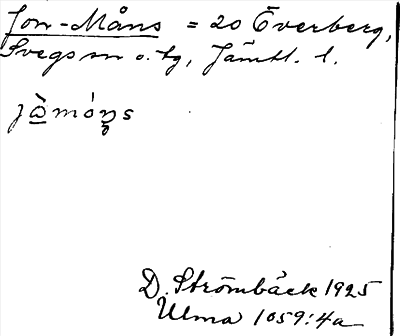 Jon-Måns = 20 Överberg,
Svegs sn o. tg, Jämtl. l.
jàmóns
D. Strömbäck 1925
Ulma 1059:4a